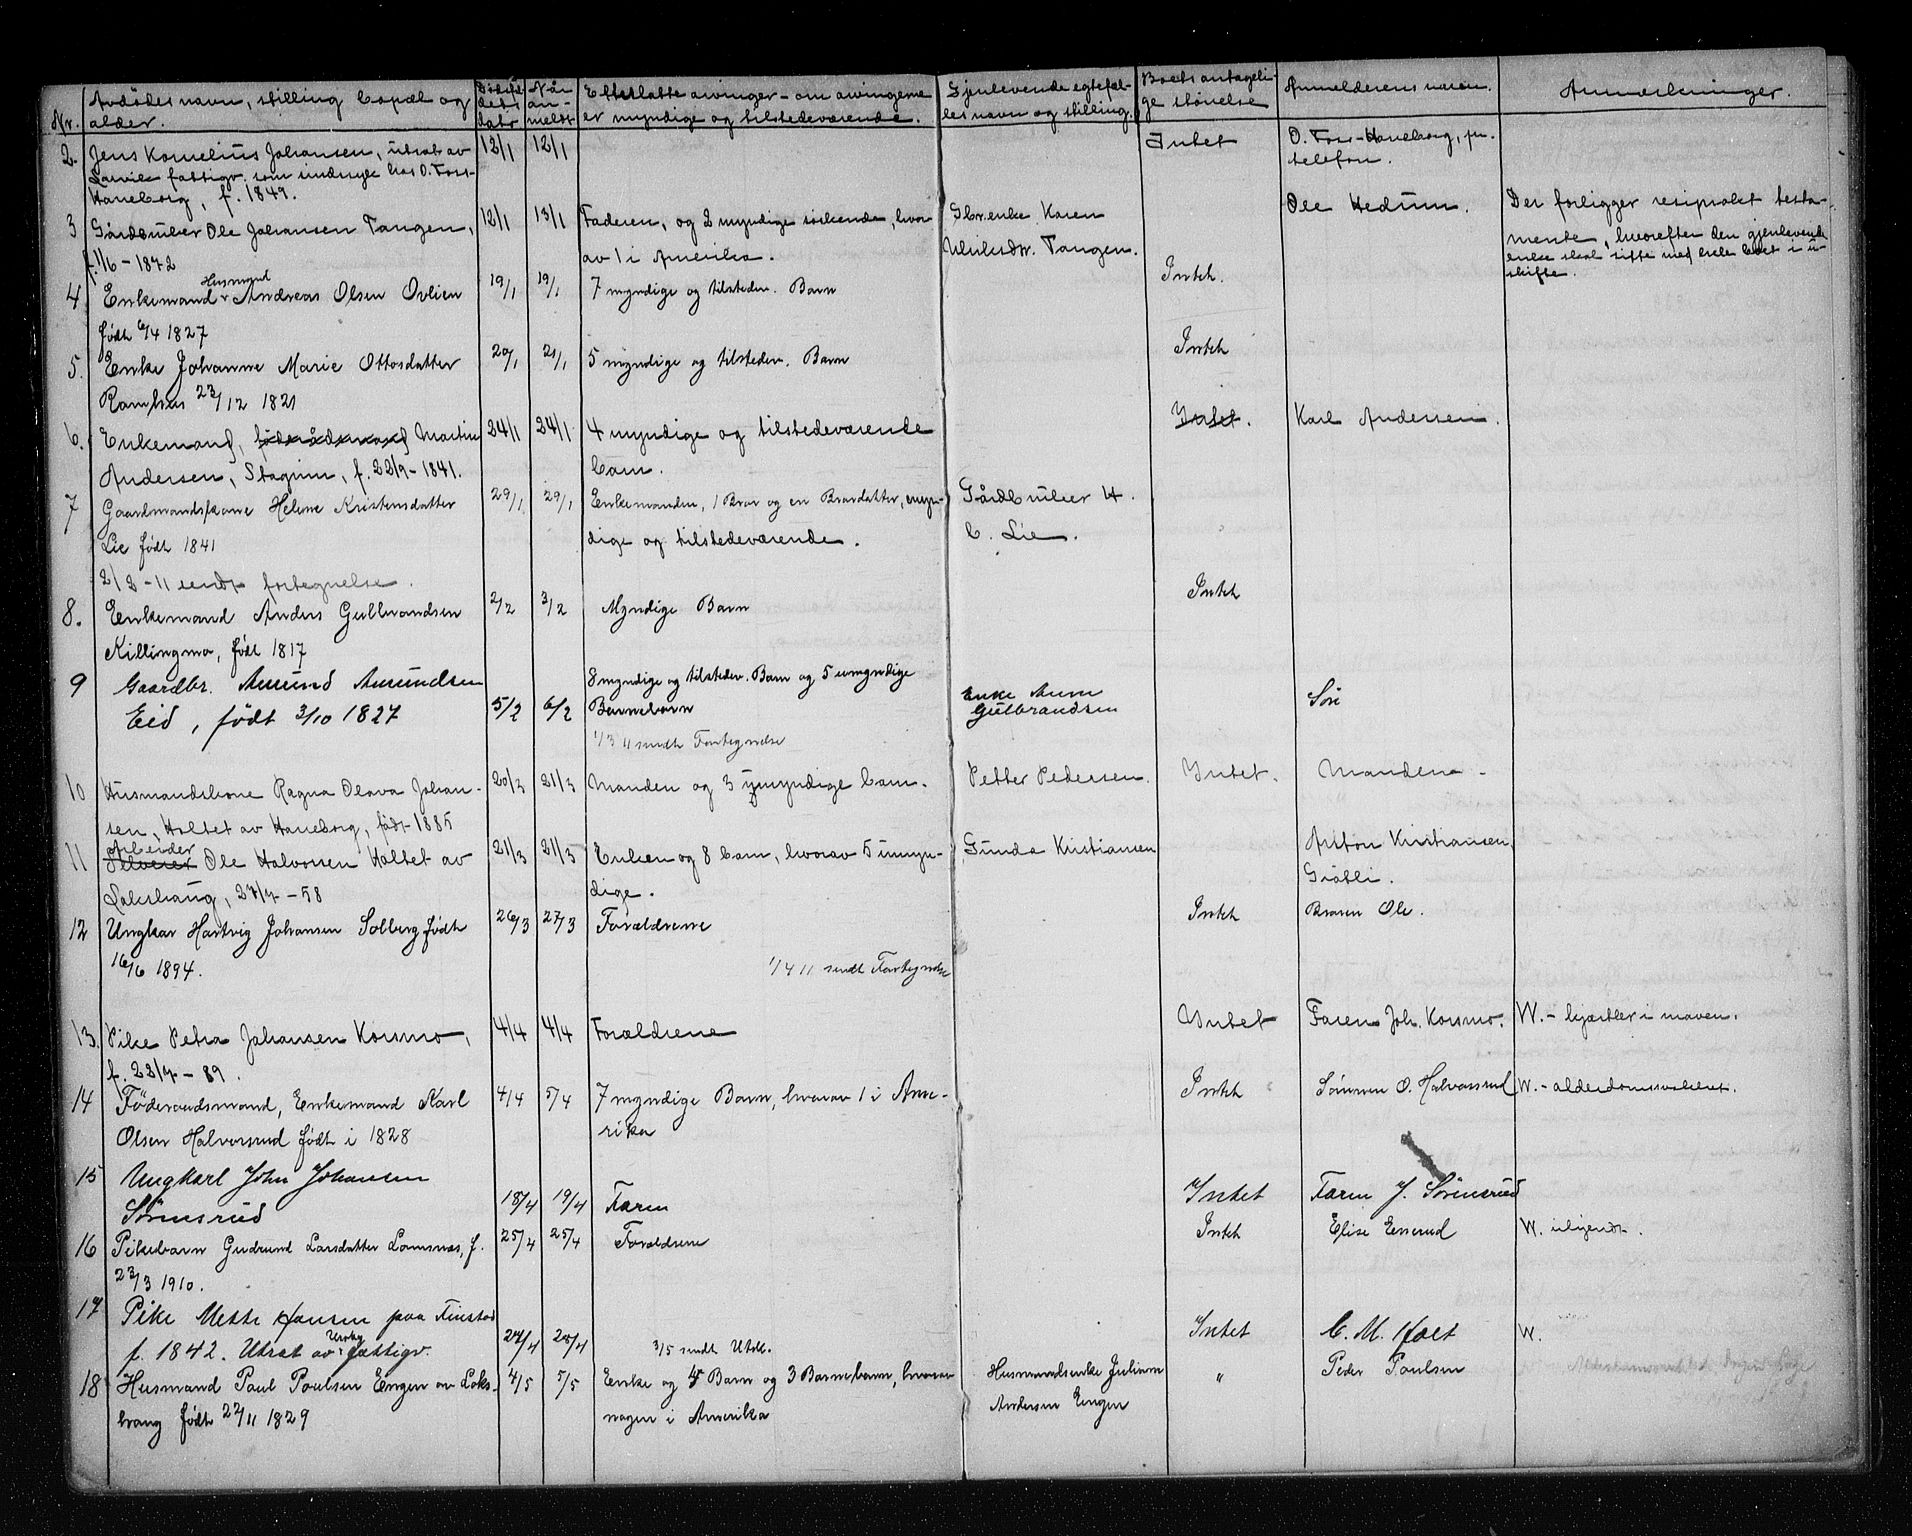 Nr. Avdødes navn, stilling bopæl og alder. Dødsfaldets dato Når anmeldt Efterlatte arvinger - om arvingerne er myndige og tilstedeværende. Gjenlevende egtefælles navn og stilling. Boets antagelige størelse Anmelderens navn. Anmerkninger.
2. Jens Kornelius Johansen, utsat av 12/1 12/1 Intet O. Foss-Haneborg, pr.
Larvik fattigv. som sindssyk hos O. Foss- telefon.
Haneborg, f. 1849.
3 Gårdbruker Ole Johansen Tangen, 12/1 13/1 Faderen, og 2 myndige søskende, hvor- Gbr.enke Karen Ole Hedum. Der foreligger resiprokt testa-
f. 1/6 - 1872 av 1 i Amerika. Tangen. mente, hvorefter den gjenlevende
enke skal sitte med hele boet i u-
skifte.
4. Enkemand Husmand Andreas Olsen Ovlien 19/1 19/1 7 myndige og tilstedev. Barn Intet.
født 6/4 1827
5. Enke Johanne Marie Ottosdatter 20/1 21/1 5 myndige og tilstedev. Barn Intet
23/12 1821
6. Enkemand, Martin 24/1 24/1 4 myndige og tilstedeværende Intet. Karl Andersen.
Andersen, f. 22/9 - 1841. barn.
7 Gaardmandskone Helene Kristensdatter 29/1 29/1 Enkemanden, 1 Bror og en Brordatter, myn- Gårdbruker H.
Lie født 1841 dige og tilstedeværende. C. Lie.
2/2 - 11 sendt fortegnelse.
8. Enkemand Anders Gulbrandsen 2/2 3/2 Myndige Barn Intet
Killingmo, født 1817
9 Gaardbr. Amund Amundsen 8 myndige og tilstedev. Barn og 5 umyndige
Eid, født 3/10 1827 5/2 6/2 Barnebarn Enke Anne Gulbrandsen
1/3 11 sendt Fortegnelse
10 Husmandskone Ragna Olava Johan- 20/3 21/3 Manden og 3 umyndige barn. Petter Pedersen. Intet. Manden.
sen, Holtet av Haneborg, født 1885
11 Arbeider Ole Halvorsen Holtet av 21/3 21/3 Enken og 8 barn, hvorav 5 umyn- Gunda Kristiansen Anton Kristiansen,
27/7 - 58 dige.
12 Ungkar Hartvig Johansen Solberg født 26/3 27/3 Forældrene Intet Broren Ole.
16/6 1894. 1/4 11 sendt Fortegnelse
13. Pike Petra Johansen Korsmo, 4/4 4/4 Forældrene Intet Faren Joh. Korsmo. W. -
f. 23/7 - 89.
14 Føderaadsmand, Enkemand Karl 4/4 5/4 7 myndige Barn, hvorav 1 i Ame- Intet Sønnen O. Halvorsrud W. - alderdomssvakhet.
Olsen Halvorsrud født i 1828 rika
15 Ungkarl John Johansen
Sørensrud 18/4 19/4 Faren Intet Faren J. Sørensrud
16 Pikebarn Gudrund Larsdatter Lomsnæs, f. 25/4 25/4 Forældrene Intet Elise W. ukjendt.
23/3 1910.
17 Pike Mette Hansen paa Finstad
f. 1842. Utsat av Urskog fattigv. 27/4 28/4 3/5 sendt Utdl. Intet C. M. Holt W.
18 Husmand Paul Poulsen Engen av Loks- 4/5 5/5 Enke og 4 Barn og 3 Barnebarn, hvorav Husmandsenke Juliane " Peder Poulsen
hang født 27/11 1829 nogen i Amerika Andersen Engen